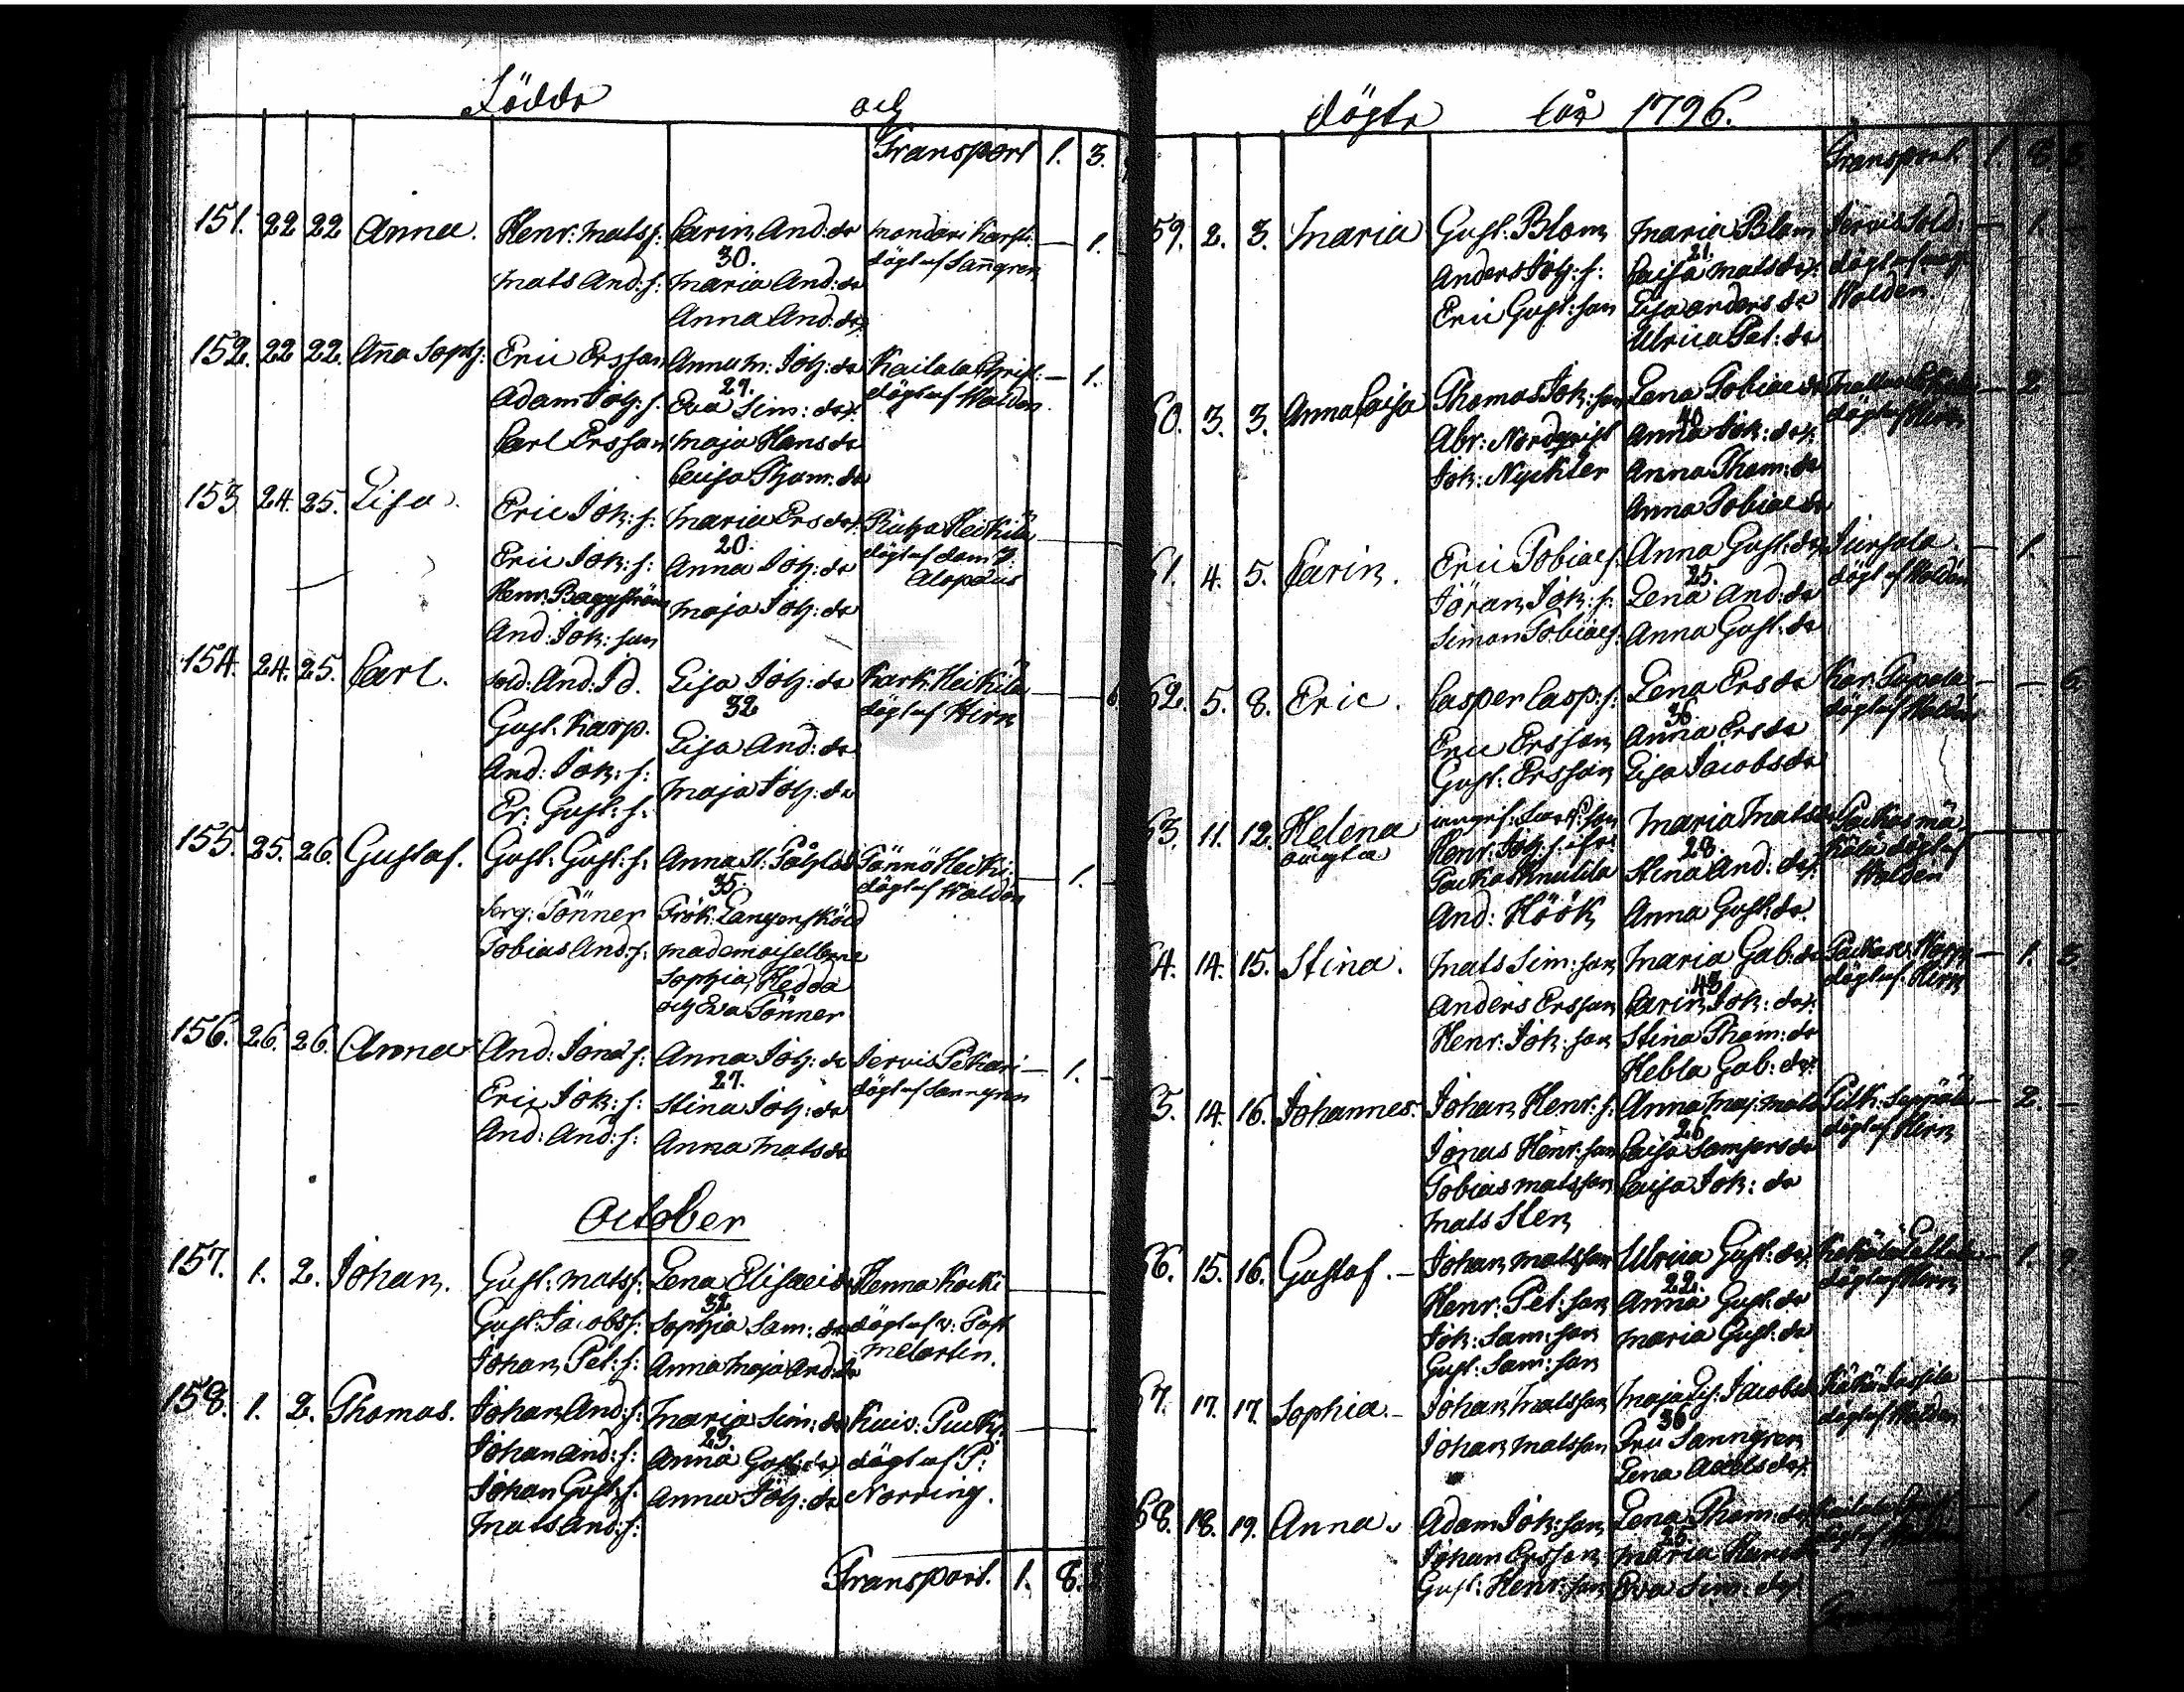 Födde och
Transport 1. 3.
151. 22 22 Anna. Henr: Mats s: Carin And: dr Mondari Karst: — 1.
30. döpt af Sanngren
Mats And: s: Maria And: dr
Anna And: dr
152. 22 22. Anna Soph: Eric Ersson Anna M: Joh: dr Kailala Christ: — 1.
29. döpt af Walden
Adam Joh: s. Eva Sim: dr
Carl Ersson Maja Hans dr
Caisa Thom: dr
153 24. 25. Lisa. Eric Joh: s: Maria Ers dr Heikilä
20. döpt af Dom P:
Eric Joh: s: Anna Joh: dr Alopæus
Henr: Baggström Maja Joh: dr
And: Joh: son
154. 24. 25. Carl. Sold: And: Id. Lisa Joh: dr Kark: Heikilä
32 döpt af Hirn
Gust: Karp. Lisa And: dr
And: Joh: s: Maja Joh: dr
Er: Gust: s:
155. 25. 26. Gustaf. Gust: Gust: s: Anna St: Tönnö Heiki: — 1.
35. döpt af Walden
Serg: Tönner Frök: Langenskjöld
Tobias And: s: Mademoisellerne
Sophia, Hedda
och Eva Tönner
156. 26. 26. Anna And: Jona s: Anna Joh: dr Servis Pekari — 1.
27. döpt af Sanngren
Eric Joh: s: Stina Joh: dr
And: And: s: Anna Mats dr
October
157. 1. 2. Johan. Gust: Mats s: Lena Elisaei dr Henna Kocki
32
Gust: Jacobs s: Sophia Sam: dr döpt af v: Past
Johan Pet: s: Anna Maja And: dr Melartin.
158. 1. 2. Thomas. Johan And: s: Maria Sim: dr Kuiv: Pucki
23.
Johan And: s: Anna Gust: dr döpt af P:
Johan Gust: s: Anna Joh: dr Norring.
Mats And: s:
Transport. 1. 8.
döpte för 1796.
Transport. 1. 8.
59. 2. 3. Maria Gust: Blom Maria Blom Servis Sold: — 1. —
21. döpt af
Anders Joh: s: Caisa Mats dr: Walden
Eric Gust: son Lisa Anders dr
Ulrica Pet: dr
60. 3. 3. Anna Caisa Thomas Joh: son Lena Tobiae dr — 2
40 döpt af Hirn
Abr: Nordqvist Anna Joh: dr:
Joh: Nyckler Anna Thom: dr
Anna Tobiae dr
61. 4. 5. Carin. Eric Tobiae s: Anna Gust: dr — 1. —
25. döpt af Walden
Jöran Joh: s: Lena And: dr
Simon Tobiae s: Anna Gust: dr
62. 5. 8. Eric. Casper Casp: s: Lena Ers dr Kar: Papola — — 6.
36. döpt af Walden
Eric Ersson Anna Ers dr
Gust: Ersson Lisa Jacobs dr
63. 11. 12. Helena Maria Mats dr
oägta Henr: Joh: s. 28. döpt af
Stina And: dr: Walden
And: Höök Anna Gust: dr.
64. 14. 15. Stina. Mats Sim: son Maria Gab: dr — 1. 3.
43 döpt af Hirn
Anders Ersson Carin Joh: dr:
Henr: Joh: son Stina Thom: dr
Hebla Gab: dr:
65. 14. 16. Johannes. Johan Henr: s: Anna Maj: Mats — 2. —
26 döpt af Hirn
Jonas Henr: son Caisa
Tobias Matsson Caisa Joh: dr
Mats Sten
66. 15. 16. Gustaf. — Johan Matsson Ulrica Gust: dr — 1. 9.
22. döpt af Hirn
Henr: Pet: son Anna Gust: dr
Joh: Sam: son Maria Gust: dr
Gust: Sam: son
67. 17. 17. Sophia. — Johan Matsson Maja Jacobs
36 döpt af Walden
Johan Matsson Fru Sanngren
Lena
68. 18. 19. Anna. Adam Joh: son Lena Thom: dr — 1. —
25.
Johan Ersson Maria Hans
Gust: Henr: son Eva Sim: dr: